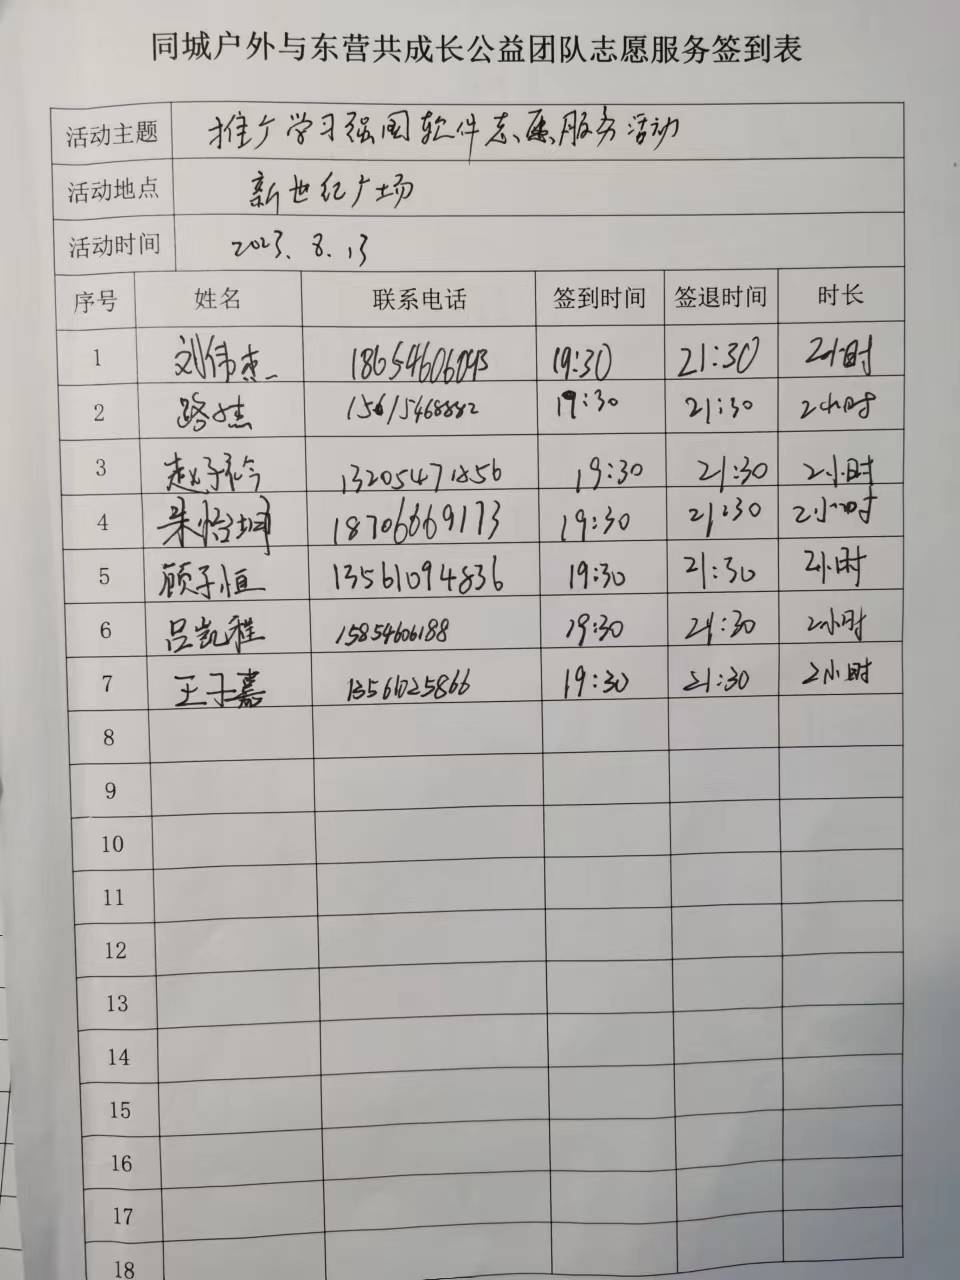 同城户外与东营共成长公益团队志愿服务签到表
活动主题 推广学习强国软件志愿服务活动
活动地点 新世纪广场
活动时间 2023.8.13
序号 姓名 联系电话 签到时间 签退时间 时长
1 刘伟杰 19:30 21:30 2小时
2 路杰 15615468882 19:30 21:30 2小时
3 赵子衿 13205471856 19:30 21:30 2小时
4 朱怡 18706669173 19:30 21:30 2小时
5 顾子恒 13561094836 19:30 21:30 2小时
6 吕凯程 15854606188 19:30 21:30 2小时
7 王子嘉 13561025866 19:30 21:30 2小时
8
9
10
11
12
13
14
15
16
17
18